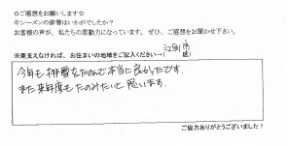 ☆ご感想をお願いします☆
今シーズンの排雪はいかがでしたか?
お客様の声が、私たちの原動力になっています。ぜひ、ご感想をお聞かせ下さい。
※差支えなければ、お住まいの地域をご記入ください…( 江別 市 区)
今年も排雪をたのんで本当に良かったです。
また来年度もたのみたいと思います。
ご協力ありがとうございました!